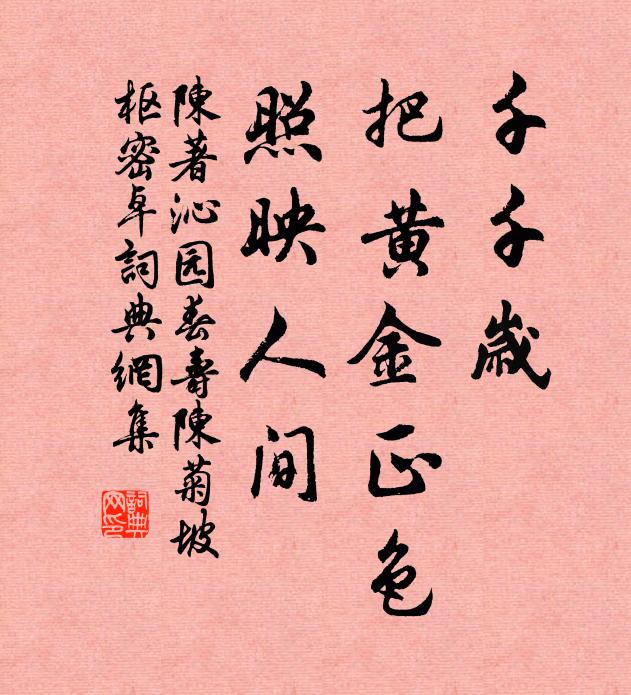 千千歲
把黃金正色
照映人间
陳著沁园春壽陳菊坡
枢密卓詞典網集
詞典网印